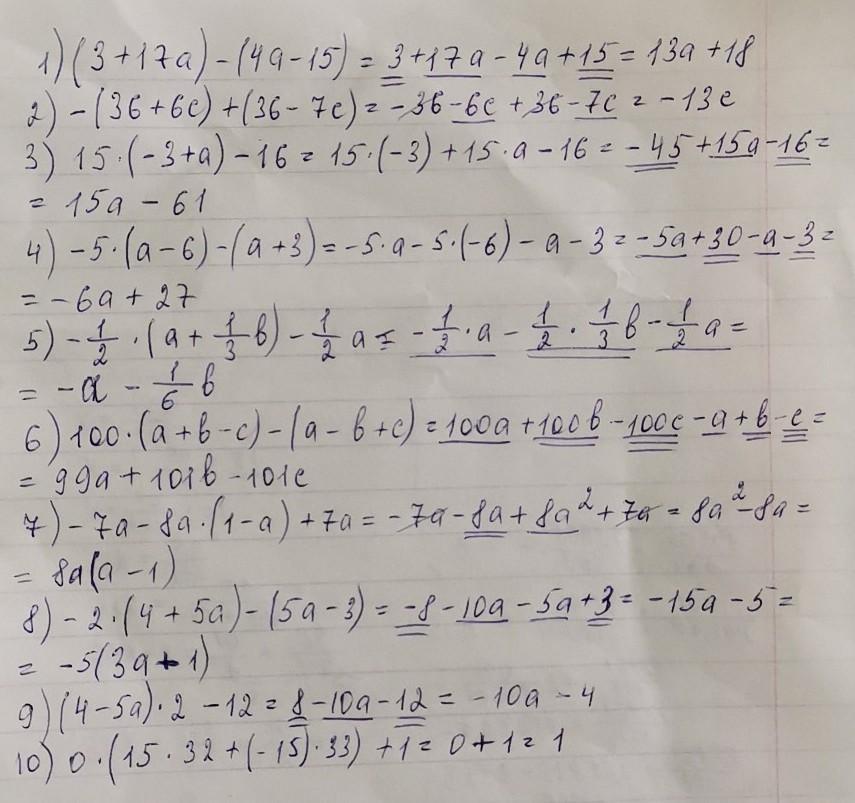 1) (3+17a) - (4a-15) = 3+17a - 4a+15 = 13a+18
2) -(3в+6c)+(3в-7c) = -3в-6c+3в-7c = -13c
3) 15·(-3+a) - 16 = 15·(-3)+15·a-16 = -45+15a-16 =
= 15a - 61
4) -5·(a-6)-(a+3) = -5·a-5·(-6)-a-3 = -5a+30-a-3 =
= -6a+27
5) -1/2·(a+1/3 в) - 1/2 a = -1/2·a - 1/2·1/3 в - 1/2 a =
= -a - 1/6 в
6) 100·(a+в-c)-(a-в+c) = 100a+100в-100c-a+в-c =
= 99a+101в-101c
7) -7a-8a·(1-a)+7a = -7a-8a+8a²+7a = 8a²-8a =
= 8a(a-1)
8) -2·(4+5a)-(5a-3) = -8-10a-5a+3 = -15a-5 =
= -5(3a+1)
9) (4-5a)·2-12 = 8-10a-12 = -10a-4
10) 0·(15·32+(-15)·33)+1 = 0+1 = 1